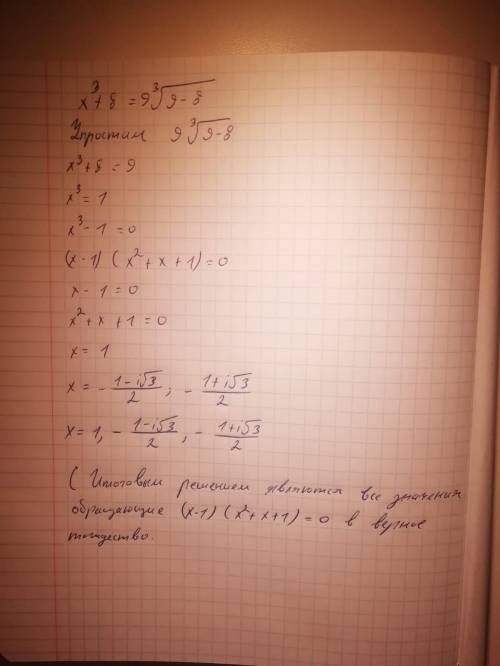 x³ + 8 = 9∛(9-8)
Упростим 9∛(9-8)
x³ + 8 = 9
x³ = 1
x³ - 1 = 0
(x-1) (x² + x + 1) = 0
x - 1 = 0
x² + x + 1 = 0
x = 1
x = - (1-i√3)/2 ; - (1+i√3)/2
x = 1, - (1-i√3)/2 , - (1+i√3)/2
( Итоговым решением являются все значения
обращающие (x-1) (x² + x + 1) = 0 в верное
тождество.